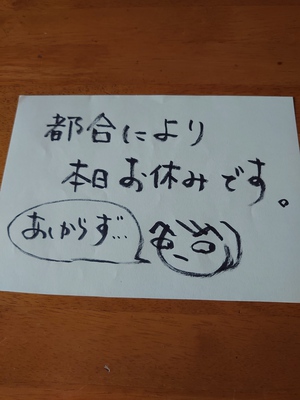 都合により
本日お休みです。
あしからず…